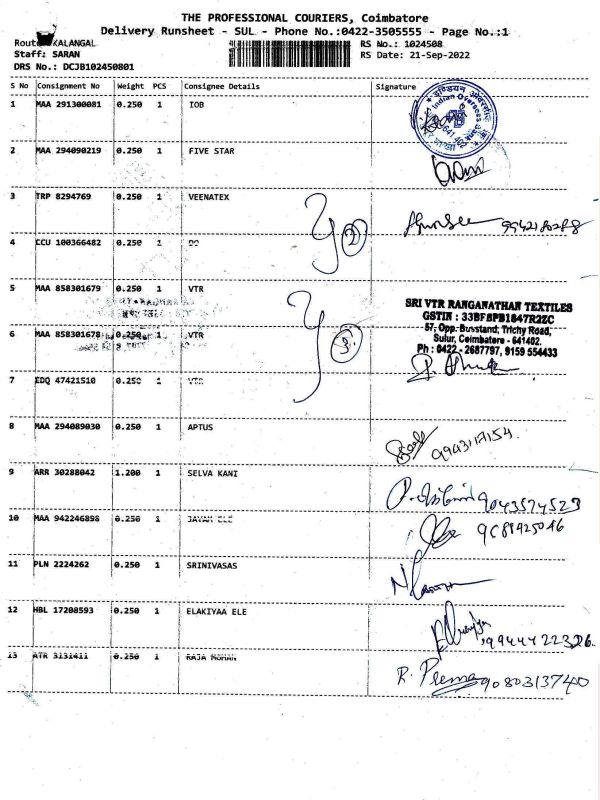 THE PROFESSIONAL COURIERS, Coimbatore
Delivery Runsheet - SUL - Phone No.:0422-3505555 - Page No.:1
KALANGAL
RS No.: 1024508
Staff: SARAN
RS Date: 21-Sep-2022
DRS No.: DCJB102450801
S No Consignment No Weight PCS Consignee Details Signature
1 MAA 291300081 0.250 1 IOB
Indian Overseas
2 MAA 294090219 0.250 1 FIVE STAR
3 TRP 8294769 0.250 1 VEENATEX
2
4 CCU 100366482 0.250 1 DO
5 MAA 858301679 0.250 1 VTR
SRI VTR RANGANATHAN TEXTILES
GSTIN : 33BFSPB1847R2ZC
57, Opp. Busstand, Trichy Road,
Sulur, Coimbatore - 641402.
Ph : 0422 - 2687797, 9159 554433
6 MAA 858301678 0.250 1 VTR
3
7 EDQ 47421510 0.250 1 VTR
8 MAA 294089030 0.250 1 APTUS
9943117154
9 ARR 30288042 1.200 1 SELVA KANI
9043574523
10 MAA 942246898 0.250 1 JAYAM ELE
11 PLN 2224262 0.250 1 SRINIVASAS
12 HBL 17208593 0.250 1 ELAKIYAA ELE
13 ATR 3131411 0.250 1 RAJA MOHAN
R. Prema 9080313740